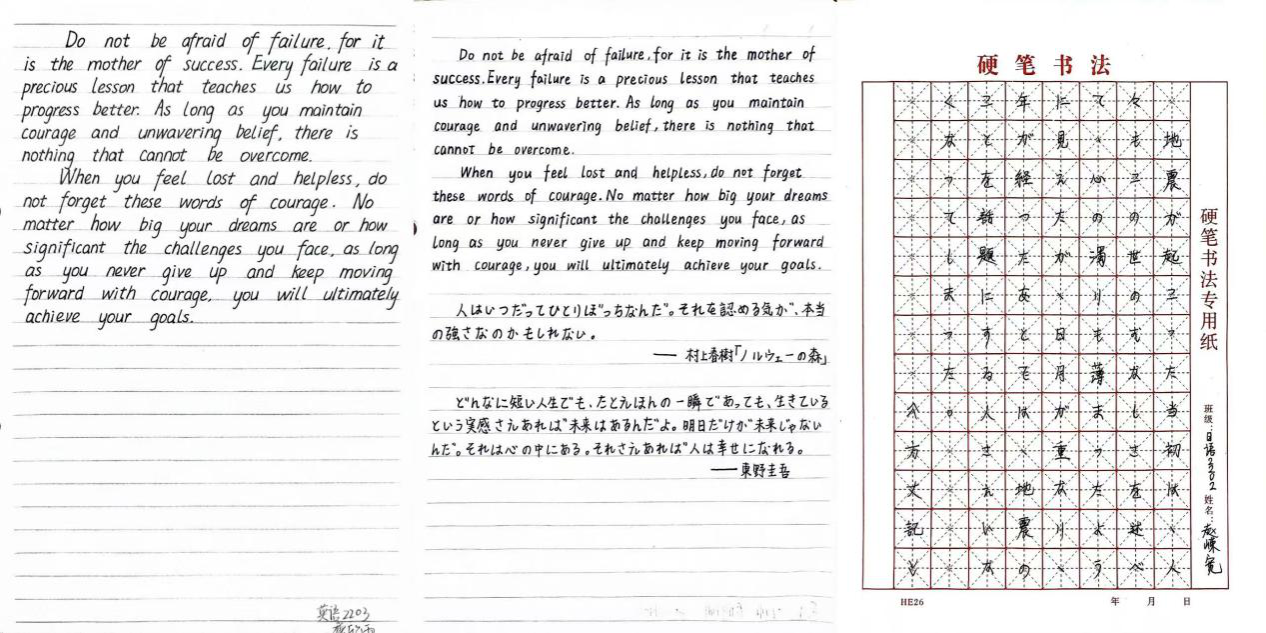 Do not be afraid of failure, for it
is the mother of success. Every failure is a
precious lesson that teaches us how to
progress better. As long as you maintain
courage and unwavering belief, there is
nothing that cannot be overcome.
When you feel lost and helpless, do
not forget these words of courage. No
matter how big your dreams are or how
significant the challenges you face, as long
as you never give up and keep moving
forward with courage, you will ultimately
achieve your goals.
英语2203
Do not be afraid of failure, for it is the mother of
success. Every failure is a precious lesson that teaches
us how to progress better. As long as you maintain
courage and unwavering belief, there is nothing that
cannot be overcome.
When you feel lost and helpless, do not forget
these words of courage. No matter how big your dreams
are or how significant the challenges you face, as
long as you never give up and keep moving forward
with courage, you will ultimately achieve your goals.
人はいつだってひとりぼっちなんだ。それを認める気が、本当
の強さなのかもしれない。
—— 村上春樹「ノルウェーの森」
どんなに短い人生でも、たとえほんの一瞬であっても、生きている
という実感さえあれば未来はあるんだよ。明日だけが未来じゃない
んだ。それは心の中にある。それさえあれば人は幸せになれる。
—— 東野圭吾
硬笔书法
、地震が起こった当初は、人
々もこの世のむなしさを述べ
て、心の濁りも薄まったよう
に見えたが、日月が重なり、
年が経ったあとでは、地震の
ことを話題にする人さえいな
くなってしまった。
《方丈記》
硬笔书法专用纸
班级:日语2302 姓名:
HE26
年 月 日